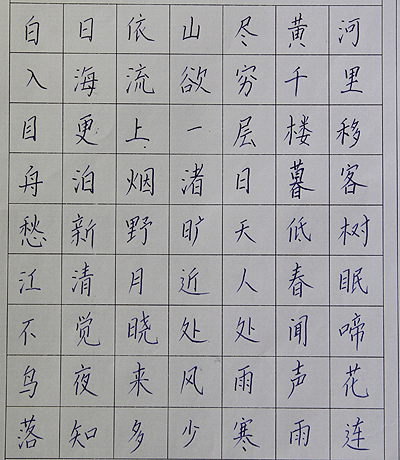 白日依山尽黄河
入海流欲穷千里
目更上一层楼移
舟泊烟渚日暮客
愁新野旷天低树
江清月近人春眠
不觉晓处处闻啼
鸟夜来风雨声花
落知多少寒雨连